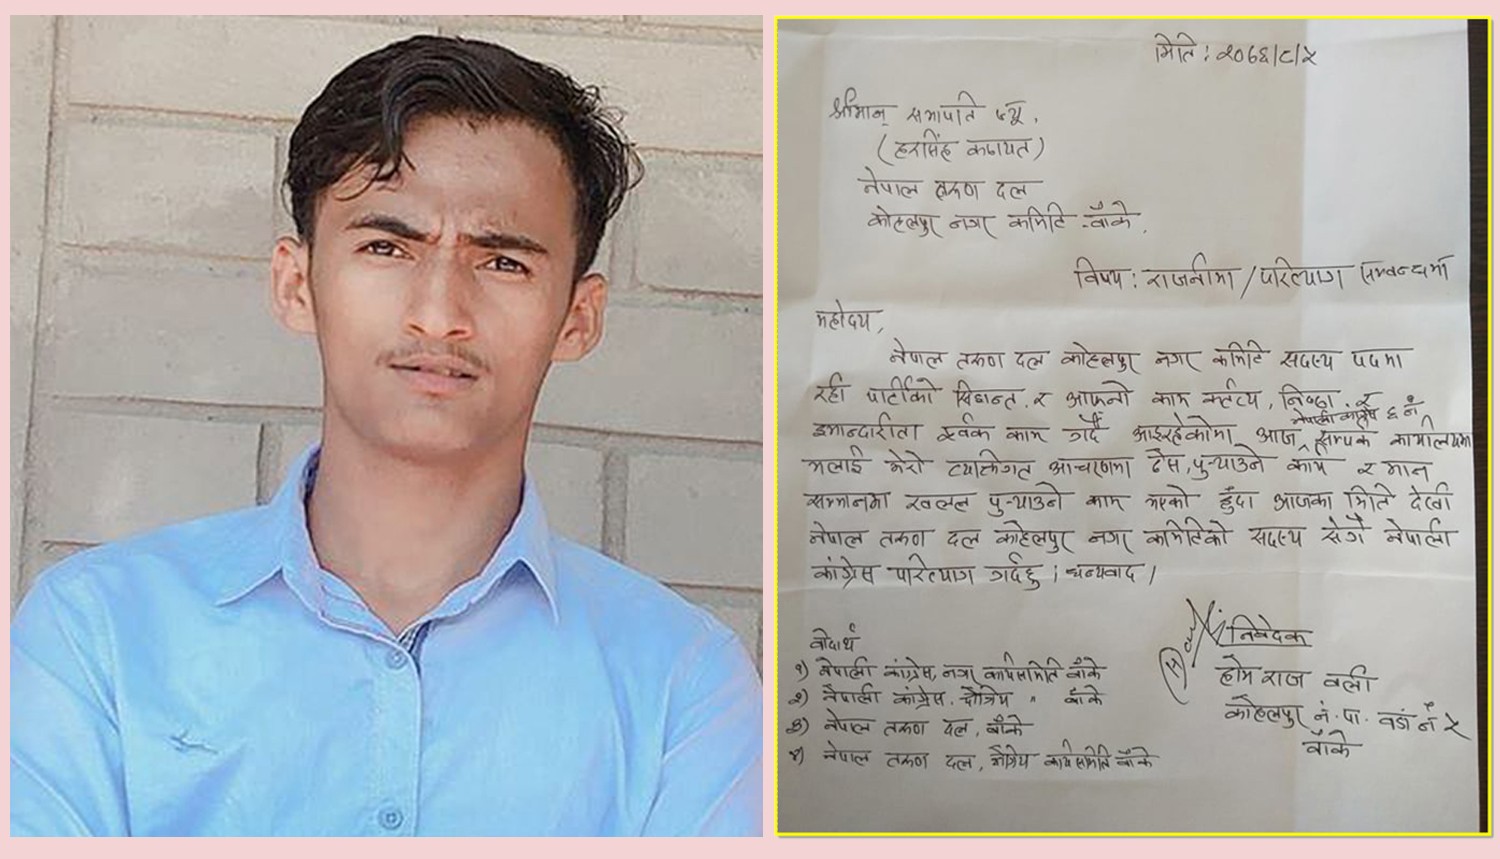 मिति : २०७६/८/५
श्रीमान् सभापति ज्यू,
(हरसिंह कठायत)
नेपाल तरुण दल
कोहलपुर नगर कमिटि बाँके,
विषय : राजनीमा / परित्याग सम्बन्धमा
महोदय,
नेपाल तरुण दल कोहलपुर नगर कमिटि सदस्य पदमा
रही पार्टीको सिद्धान्त र आफ्नो काम कर्तव्य, निष्ठा र
नेपाली कांग्रेस ६ नं
इमान्दारीता पूर्वक काम गर्दै आईरहेकोमा आज सम्पर्क कार्यालयमा
मलाई मेरो व्यक्तिगत आचरणमा ठेस, पुर्‍याउने काम र मान
सम्मानमा खलल पुर्‍याउने काम भएको हुँदा आजका मिति देखी
नेपाल तरुण दल कोहलपुर नगर कमिटिको सदस्य सँगै नेपाली
कांग्रेस परित्याग गर्दछु । धन्यवाद ।
निवेदक
होम राज वली
कोहलपुर न. पा. वडा नं २
बाँके
बोधार्थ
१) नेपाली कांग्रेस, नगर कार्यसमिति बाँके
२) नेपाली कांग्रेस, क्षेत्रिय " बाँके
३) नेपाल तरुण दल, बाँके
४) नेपाल तरुण दल, क्षेत्रिय कार्यसमिति बाँके